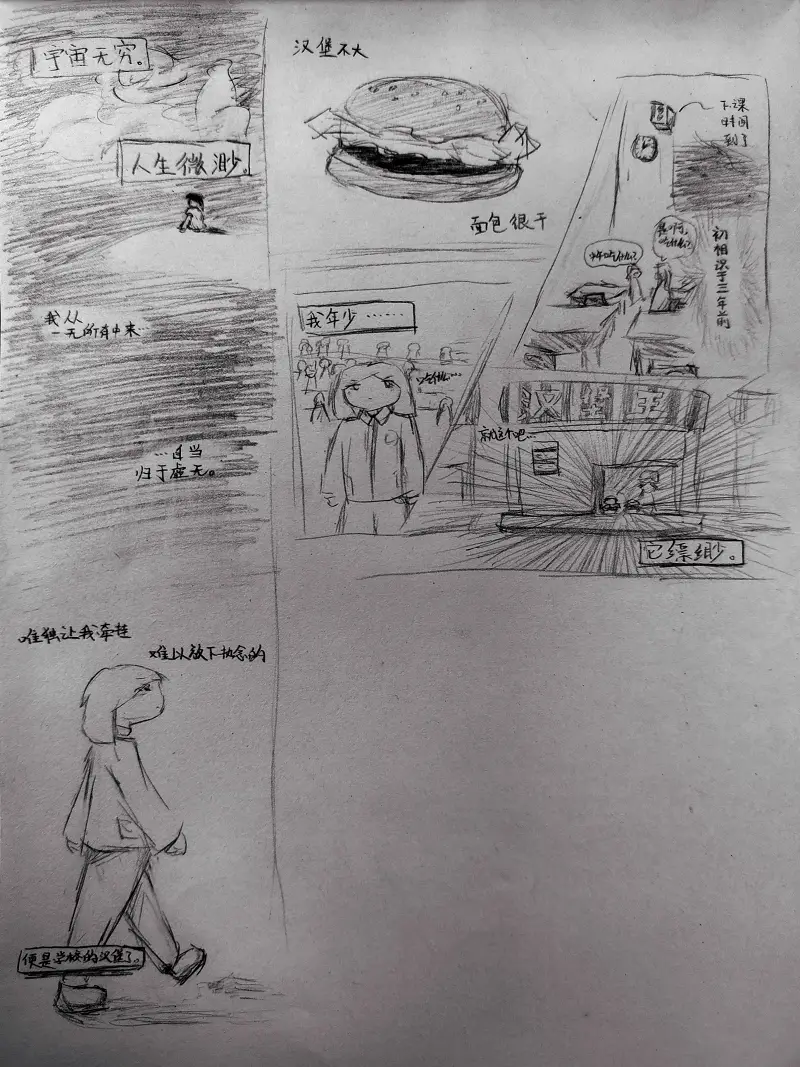 宇宙无穷。
人生微渺。
我从
一无所有中来…
…过当
归于虚无。
唯独让我牵挂
难以放下执念的
便是学校的汉堡了。
汉堡不大
面包很干
下课
时间
到了
初相识于三年前
中午吃什么?
吃什么?
我年少……
吃什么…
汉堡王
就这个吧…
它缥缈。